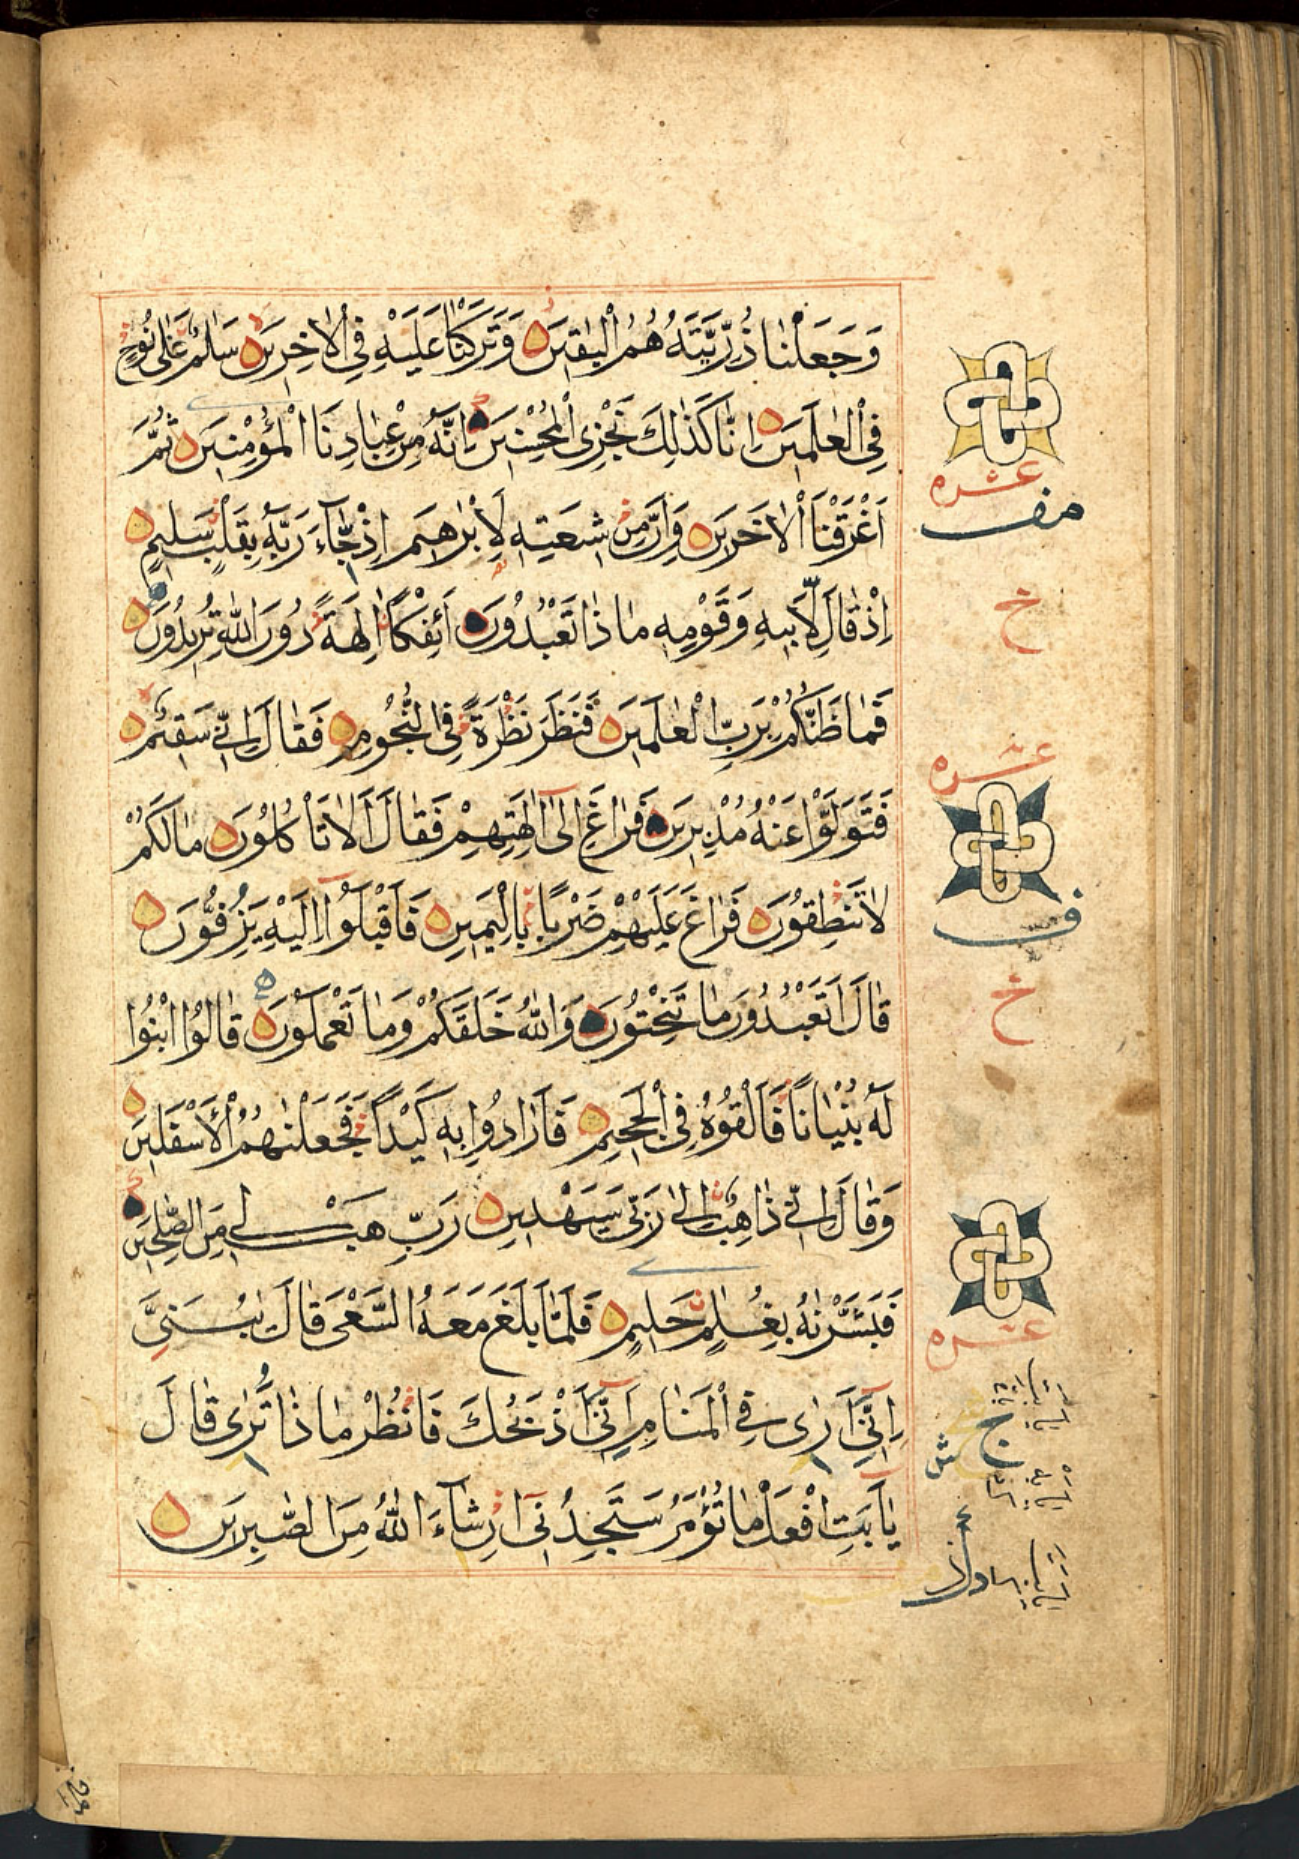 وَجَعَلْنَا ذُرِّيَّتَهُ هُمُ الْبٰقِينَ وَتَرَكْنَا عَلَيْهِ فِي الْاٰخِرِينَ سَلٰمٌ عَلٰى نُوحٍ
فِي الْعٰلَمِينَ اِنَّا كَذٰلِكَ نَجْزِى الْمُحْسِنِينَ اِنَّهُ مِنْ عِبَادِنَا الْمُؤْمِنِينَ ثُمَّ
اَغْرَقْنَا الْاٰخَرِينَ وَاِنَّ مِنْ شِيعَتِهِ لَاِبْرٰهِيمَ اِذْ جَآءَ رَبَّهُ بِقَلْبٍ سَلِيمٍ
اِذْ قَالَ لِاَبِيهِ وَقَوْمِهِ مَاذَا تَعْبُدُونَ اَئِفْكًا اٰلِهَةً دُونَ اللّٰهِ تُرِيدُونَ
فَمَا ظَنُّكُمْ بِرَبِّ الْعٰلَمِينَ فَنَظَرَ نَظْرَةً فِي النُّجُومِ فَقَالَ اِنِّي سَقِيمٌ
فَتَوَلَّوْا عَنْهُ مُدْبِرِينَ فَرَاغَ اِلٰٓى اٰلِهَتِهِمْ فَقَالَ اَلَا تَاْكُلُونَ مَا لَكُمْ
لَا تَنْطِقُونَ فَرَاغَ عَلَيْهِمْ ضَرْبًا بِالْيَمِينِ فَاَقْبَلُوٓا اِلَيْهِ يَزِفُّونَ
قَالَ اَتَعْبُدُونَ مَا تَنْحِتُونَ وَاللّٰهُ خَلَقَكُمْ وَمَا تَعْمَلُونَ قَالُوا ابْنُوا
لَهُ بُنْيَانًا فَاَلْقُوهُ فِي الْجَحِيمِ فَاَرَادُوا بِهِ كَيْدًا فَجَعَلْنٰهُمُ الْاَسْفَلِينَ
وَقَالَ اِنِّي ذَاهِبٌ اِلٰى رَبِّي سَيَهْدِينِ رَبِّ هَبْ لِي مِنَ الصّٰلِحِينَ
فَبَشَّرْنٰهُ بِغُلٰمٍ حَلِيمٍ فَلَمَّا بَلَغَ مَعَهُ السَّعْيَ قَالَ يٰبُنَيَّ
اِنِّيٓ اَرٰى فِي الْمَنَامِ اَنِّيٓ اَذْبَحُكَ فَانْظُرْ مَاذَا تَرٰى قَالَ
يٰٓاَبَتِ افْعَلْ مَا تُؤْمَرُ سَتَجِدُنِيٓ اِنْ شَآءَ اللّٰهُ مِنَ الصّٰبِرِينَ
عشره
عشره
ف
خ
عشره